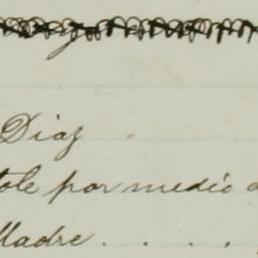 Diaz
tole por medio
Madre . . . .